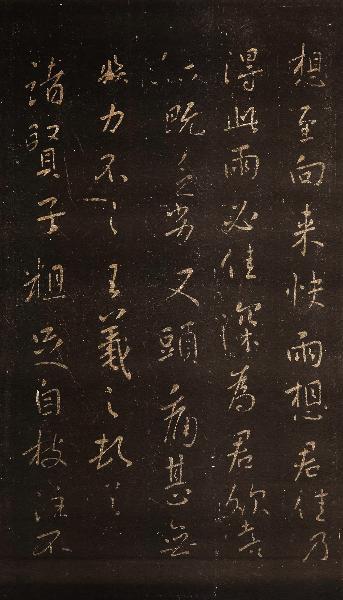 想至向来快雨想君佳乃
得此雨必佳深為君欣喜
既乏劣又頭痛甚無
力不一一王羲之頓首
諸賢子粗足自枝注不